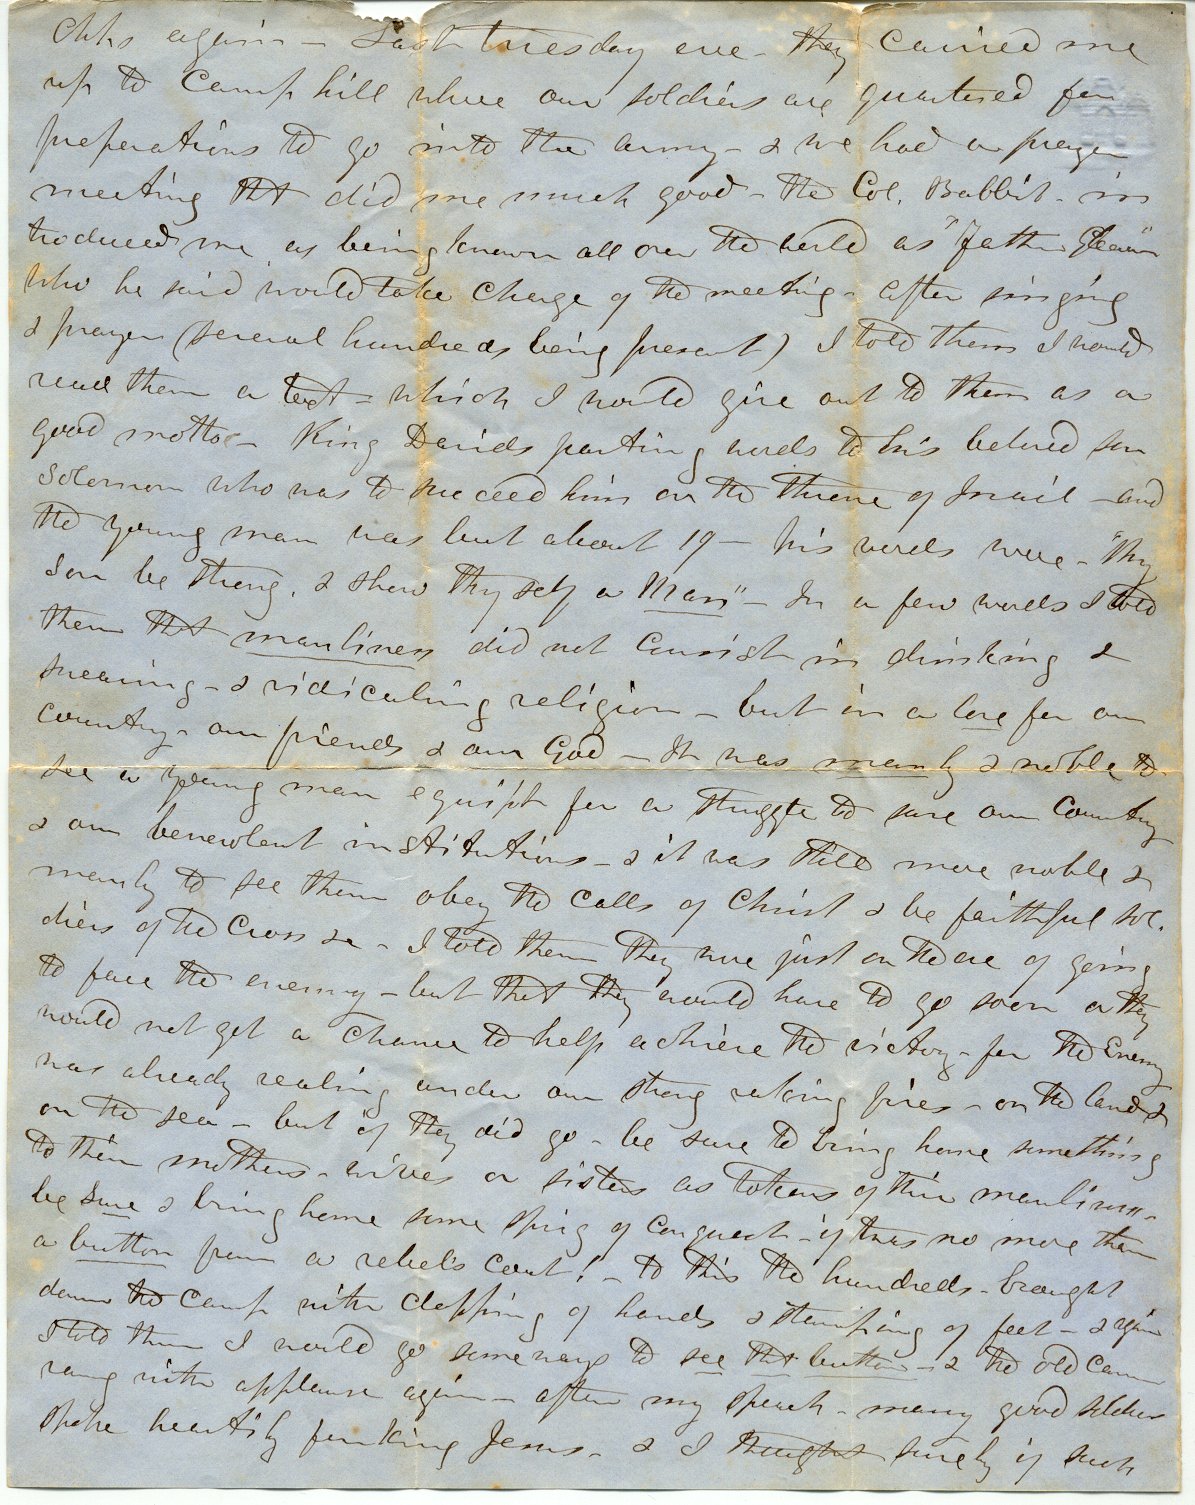 again – Last tuesday eve – they carried me
up to Camp hill where our soldiers are quartered for
preperations to go into the army – & we had a prayer
meeting tht did me much good – the Col. Babbit – in
troduced me as being known all over the world as "Father Gleason"
who he said would take charge of the meeting – after singing
& prayer (several hundreds being present) I told them I would
read them a text – which I would give out to them as a
good motto – King Davids parting words to his beloved son
Solomon who was to succeed him on the throne of Israil – and
the young man was but about 19 – his words were – "My
Son be strong, & show thy self a Man" – In a few words I told
them that manliness did not consist in drinking &
swearing – & ridiculing religion – but in a love for our
country – our friends & our God – It was manly & noble to
see a young man equipt for a struggle to save our Country
& our benevolent institutions – & it was still more noble &
manly to see them obey the calls of Christ & be faithful sol.
diers of the Cross &c – I told them they were just on the eve of going
to face the enemy – but that they would have to go soon or they
would not get a chance to help achieve the victory – for the Enemy
was already realing under our strong raking fires – on the land &
on the sea – but if they did go – be sure to bring home something
to their mothers – wives or sisters as tokens of their manliness –
be sure & bring home some sprig of conquest – if twas no more than
a button from a rebels coat! – to this the hundreds – brought
down the camp with clapping of hands & stamping of feet – & again
I told them I would go some ways to see tht button – & the old camp
rang with applause again – after my speech – many good soldiers
spoke heartily for King Jesus – & I thought surely if such